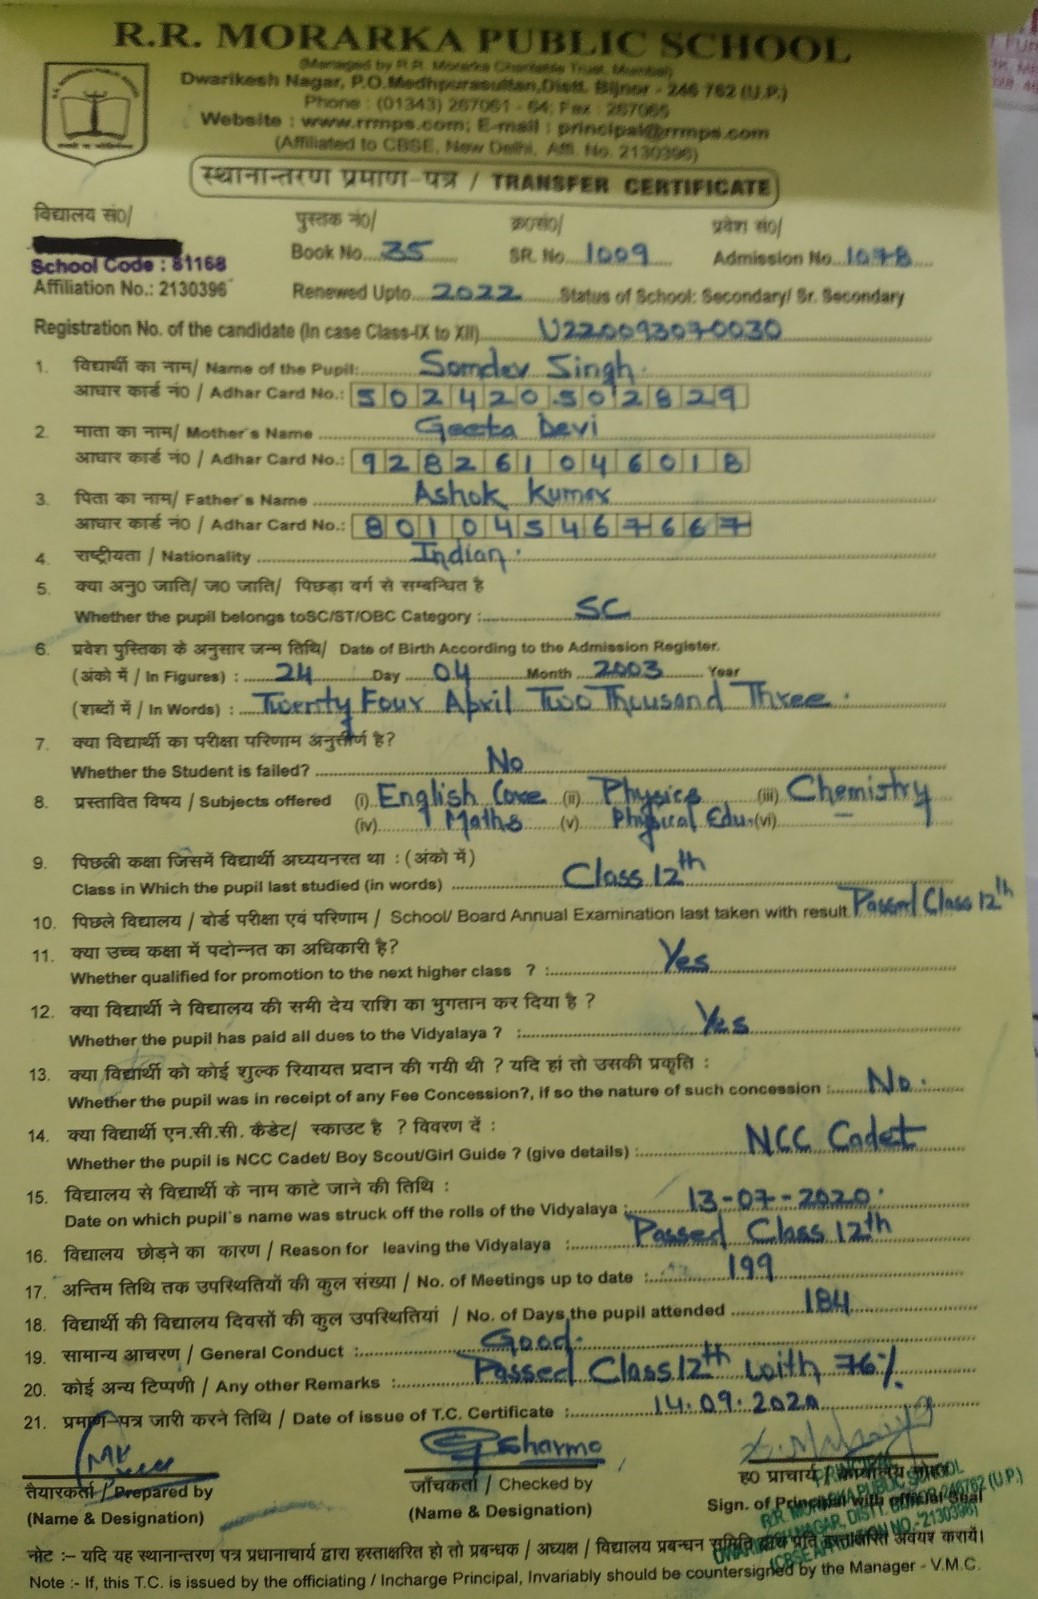 R.R. MORARKA PUBLIC SCHOOL
(Managed by R.R. Morarka Charitable Trust, Mumbai)
Dwarikesh Nagar, P.O.Medhpurasultan,Distt. Bijnor - 246 762 (U.P.)
Phone : (01343) 267061 - 64; Fax : 267065
Website : www.rrmps.com; E-mail : principal@rrmps.com
(Affiliated to CBSE, New Delhi, Affi. No. 2130396)
स्थानान्तरण प्रमाण-पत्र / TRANSFER CERTIFICATE
विद्यालय सं0/ पुस्तक नं0/ क्र0सं0/ प्रवेश सं0/
Book No. 35 SR. No. 1009 Admission No. 1078
School Code : 81168
Affiliation No.: 2130396 Renewed Upto 2022 Status of School: Secondary/ Sr. Secondary
Registration No. of the candidate (In case Class-IX to XII) U220093070030
1. विद्यार्थी का नाम/ Name of the Pupil: Somdev Singh.
आधार कार्ड नं0 / Adhar Card No.: 502420502829
2. माता का नाम/ Mother's Name Geeta Devi
आधार कार्ड नं0 / Adhar Card No.: 928261046018
3. पिता का नाम/ Father's Name Ashok Kumar
आधार कार्ड नं0 / Adhar Card No.: 801045467667
4. राष्ट्रीयता / Nationality Indian.
5. क्या अनु0 जाति/ ज0 जाति/ पिछड़ा वर्ग से सम्बन्धित है
Whether the pupil belongs toSC/ST/OBC Category : SC
6. प्रवेश पुस्तिका के अनुसार जन्म तिथि/ Date of Birth According to the Admission Register.
(अंको में / In Figures) : 24 Day 04 Month 2003 Year
(शब्दों में / In Words) : Twenty Four April Two Thousand Three.
7. क्या विद्यार्थी का परीक्षा परिणाम अनुत्तीर्ण है?
Whether the Student is failed? No
8. प्रस्तावित विषय / Subjects offered (i) English Core (ii) Physics (iii) Chemistry
(iv) Maths (v) Physical Edu. (vi) —
9. पिछली कक्षा जिसमें विद्यार्थी अध्ययनरत था : (अंको में)
Class in Which the pupil last studied (in words) Class 12th
10. पिछले विद्यालय / बोर्ड परीक्षा एवं परिणाम / School/ Board Annual Examination last taken with result Passed Class 12th
11. क्या उच्च कक्षा में पदोन्नत का अधिकारी है?
Whether qualified for promotion to the next higher class ? : Yes
12. क्या विद्यार्थी ने विद्यालय की सभी देय राशि का भुगतान कर दिया है ?
Whether the pupil has paid all dues to the Vidyalaya ? : Yes
13. क्या विद्यार्थी को कोई शुल्क रियायत प्रदान की गयी थी ? यदि हां तो उसकी प्रकृति :
Whether the pupil was in receipt of any Fee Concession?, if so the nature of such concession : No.
14. क्या विद्यार्थी एन.सी.सी. कैडेट/ स्काउट है ? विवरण दें :
Whether the pupil is NCC Cadet/ Boy Scout/Girl Guide ? (give details) : NCC Cadet
15. विद्यालय से विद्यार्थी के नाम काटे जाने की तिथि :
Date on which pupil's name was struck off the rolls of the Vidyalaya : 13-07-2020.
16. विद्यालय छोड़ने का कारण / Reason for leaving the Vidyalaya : Passed Class 12th
17. अन्तिम तिथि तक उपस्थितियों की कुल संख्या / No. of Meetings up to date : 199
18. विद्यार्थी की विद्यालय दिवसों की कुल उपस्थितियां / No. of Days the pupil attended 184
19. सामान्य आचरण / General Conduct : Good.
20. कोई अन्य टिप्पणी / Any other Remarks : Passed Class 12th with 76%.
21. प्रमाण-पत्र जारी करने तिथि / Date of issue of T.C. Certificate : 14.09.2020
Sharma
तैयारकर्ता / Prepared by जाँचकर्ता / Checked by ह0 प्राचार्य /
(Name & Designation) (Name & Designation) Sign. of Principal with official Seal
PRINCIPAL
R.R. MORARKA PUBLIC SCHOOL
DWARIKESH NAGAR, DISTT. BIJNOR-246762 (U.P.)
(CBSE AFFILIATION NO.-2130396)
नोट :- यदि यह स्थानान्तरण पत्र प्रधानाचार्य द्वारा हस्ताक्षरित हो तो प्रबन्धक / अध्यक्ष / विद्यालय प्रबन्धन समिति द्वारा प्रति हस्ताक्षरित अवश्य करायें।
Note :- If, this T.C. is issued by the officiating / Incharge Principal, Invariably should be countersigned by the Manager - V.M.C.